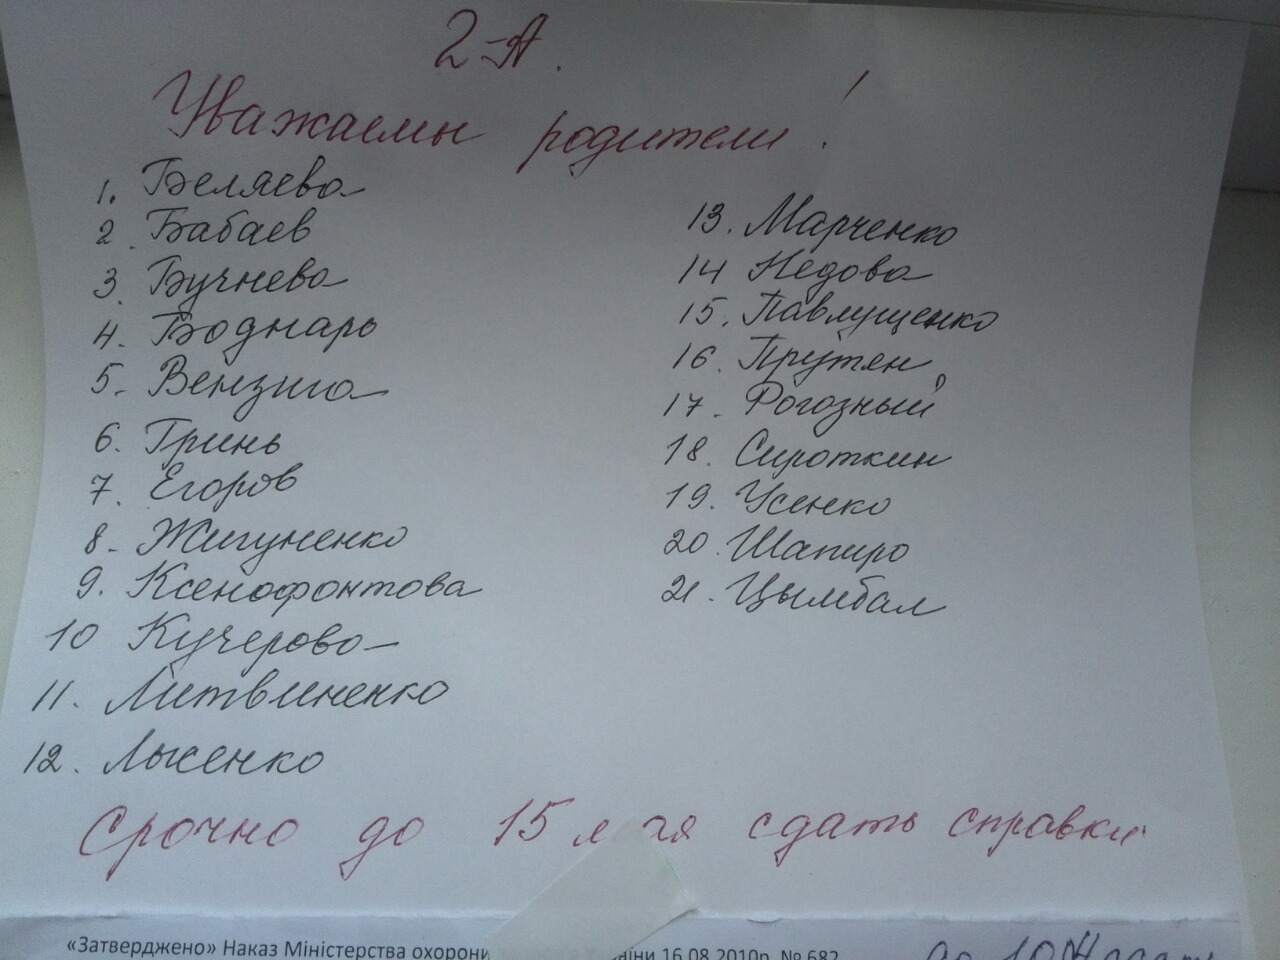 2-А.
Уважаемы родители!
1. Беляева
2. Бабаев
3. Бучнева
4. Боднарь
5. Вензига
6. Гринь
7. Егоров
8. Жигуненко
9. Ксенофонтова
10 Кучерова
11. Литвиненко
12. Лысенко
13. Марченко
14 Недова
15. Павлущенко
16. Прутян
17. Рогозный
18. Сироткин
19. Усенко
20. Шапиро
21. Цымбал
Срочно до 15 мая сдать справки
«Затверджено» Наказ Міністерства охорони 16.08.2010р. № 682
до 10